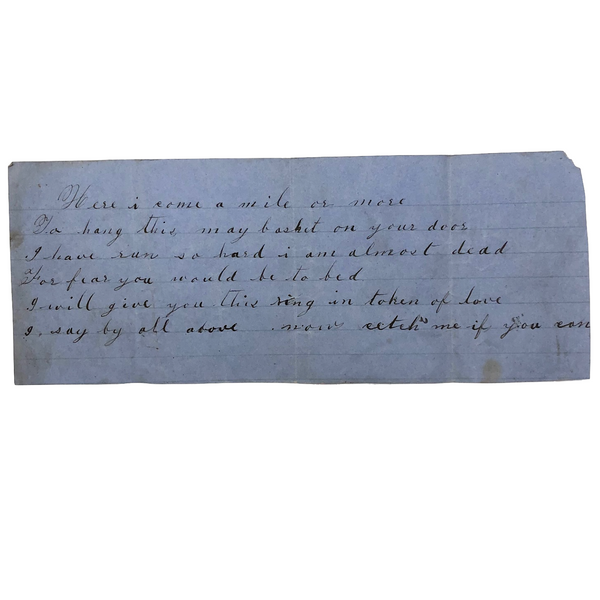 Here i come a mile or more
To hang this may basket on your door
I have run so hard i am almost dead
For fear you would be to bed
I will give you this ring in token of love
I say by all above now cetch me if you can